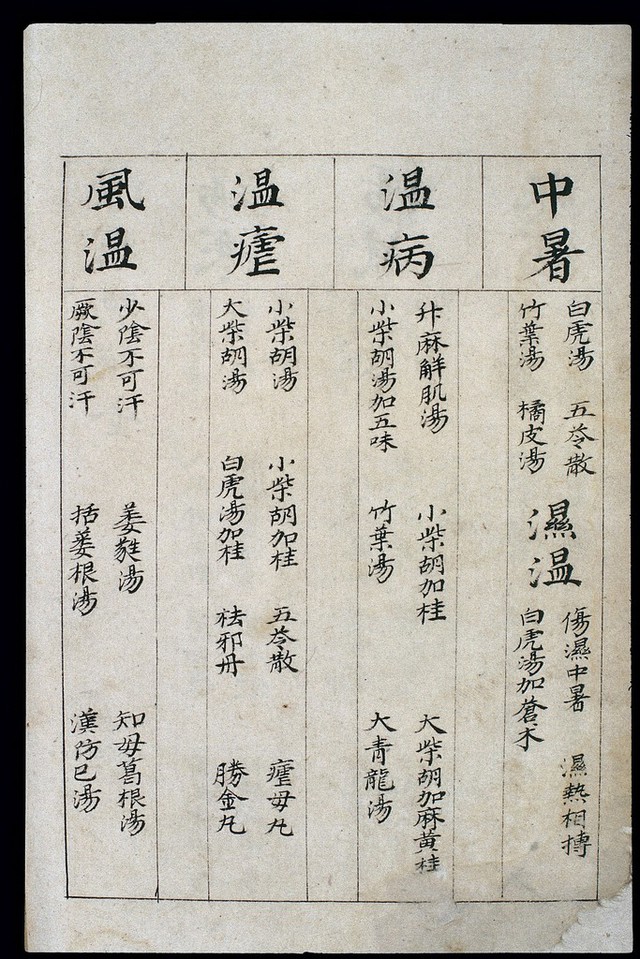 中暑
白虎湯 五苓散
竹葉湯 橘皮湯
濕温
傷濕中暑 濕熱相搏
白虎湯加蒼朮
温病
升麻觧肌湯 小柴胡加桂 大柴胡加麻黄桂
小柴胡湯加五味 竹葉湯 大青龍湯
温瘧
小柴胡湯 小柴胡加桂 五苓散 瘧母丸
大柴胡湯 白虎湯加桂 祛邪丹 勝金丸
風温
少陰不可汗 葳蕤湯 知母葛根湯
厥陰不可汗 括蔞根湯 漢防已湯